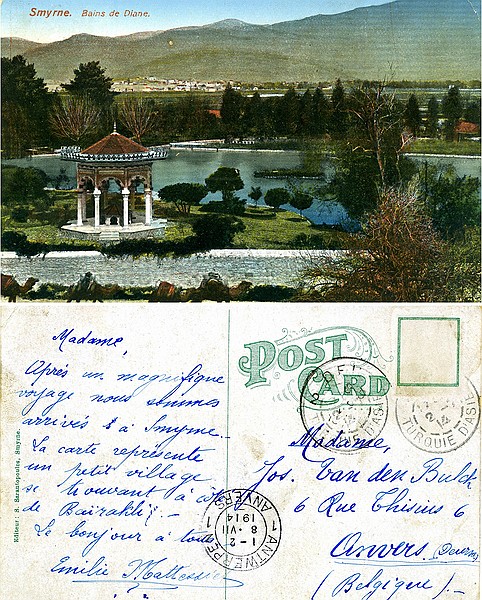 Smyrne. Bains de Diane.
Madame,
Après un magnifique
voyage nous sommes
arrivés à Smyrne.
La carte représente
un petit village
se trouvant à côté
de Bairakli.
Le bonjour à tous
Emilie
Editeur: S. Sarantopoulos, Smyrne.
POST CARD
TURQUIE D'ASIE
Madame,
Jos. Van den Bulck
6 Rue Thisius 6
Anvers
(Belgique)
1 ANTWERPEN 1
1-2
8 VII
1914
ANVERS